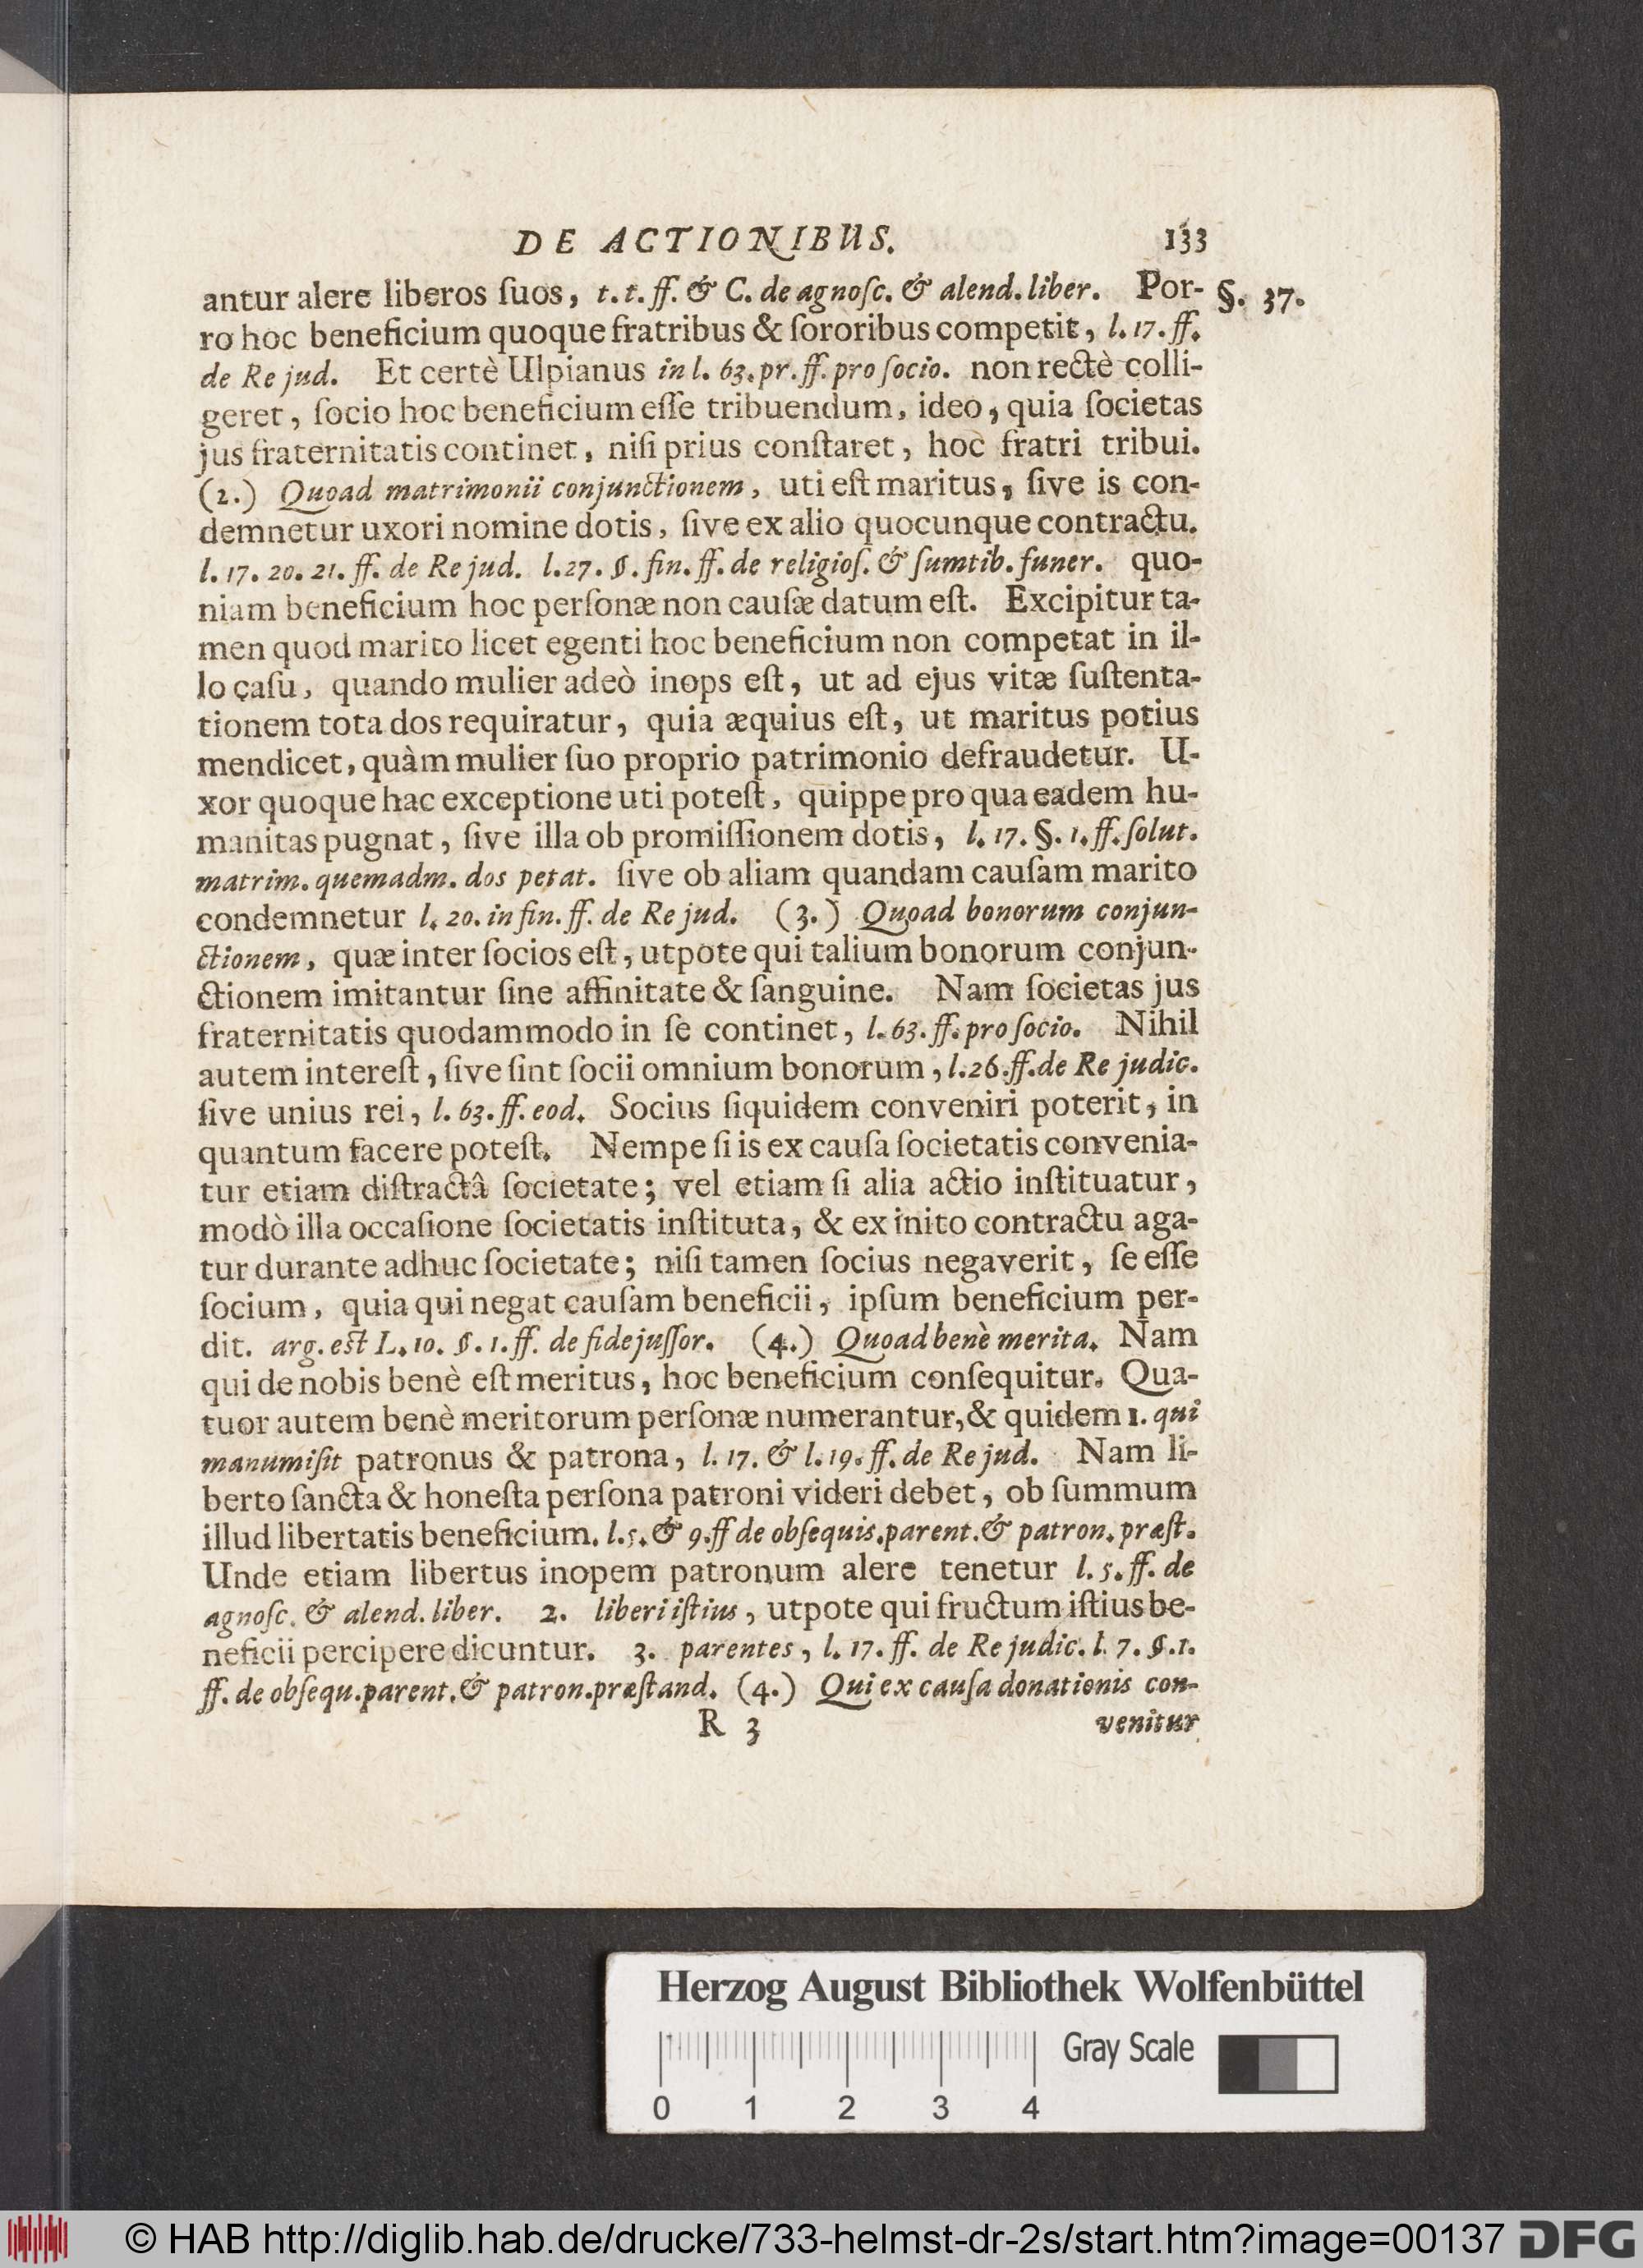 DE ACTIONIBUS. 133
antur alere liberos ſuos, t. t. ff. & C. de agnoſc. & alend. liber. Por- §. 37.
ro hoc beneficium quoque fratribus & ſororibus competit, l. 17. ff.
de Re jud. Et certè Ulpianus in l. 63. pr. ff. pro ſocio. non rectè colli-
geret, ſocio hoc beneficium eſſe tribuendum, ideo, quia ſocietas
jus fraternitatis continet, niſi prius conſtaret, hoc fratri tribui.
(2.) Quoad matrimonii conjunctionem, uti eſt maritus, ſive is con-
demnetur uxori nomine dotis, ſive ex alio quocunque contractu.
l. 17. 20. 21. ff. de Re jud. l. 27. §. fin. ff. de religioſ. & ſumtib. funer. quo-
niam beneficium hoc perſonæ non cauſæ datum eſt. Excipitur ta-
men quod marito licet egenti hoc beneficium non competat in il-
lo caſu, quando mulier adeò inops eſt, ut ad ejus vitæ ſuſtenta-
tionem tota dos requiratur, quia æquius eſt, ut maritus potius
mendicet, quàm mulier ſuo proprio patrimonio defraudetur. U-
xor quoque hac exceptione uti poteſt, quippe pro qua eadem hu-
manitas pugnat, ſive illa ob promiſſionem dotis, l. 17. §. 1. ff. ſolut.
matrim. quemadm. dos petat. ſive ob aliam quandam cauſam marito
condemnetur l. 20. in fin. ff. de Re jud. (3.) Quoad bonorum conjun-
ctionem, quæ inter ſocios eſt, utpote qui talium bonorum conjun-
ctionem imitantur ſine affinitate & ſanguine. Nam ſocietas jus
fraternitatis quodammodo in ſe continet, l. 63. ff. pro ſocio. Nihil
autem intereſt, ſive ſint ſocii omnium bonorum, l. 26. ff. de Re judic.
ſive unius rei, l. 63. ff. eod. Socius ſiquidem conveniri poterit, in
quantum facere poteſt. Nempe ſi is ex cauſa ſocietatis convenia-
tur etiam diſtractâ ſocietate; vel etiam ſi alia actio inſtituatur,
modò illa occaſione ſocietatis inſtituta, & ex inito contractu aga-
tur durante adhuc ſocietate; niſi tamen ſocius negaverit, ſe eſſe
ſocium, quia qui negat cauſam beneficii, ipſum beneficium per-
dit. arg. est L. 10. §. 1. ff. de fidejuſſor. (4.) Quoad benè merita. Nam
qui de nobis benè eſt meritus, hoc beneficium conſequitur. Qua-
tuor autem benè meritorum perſonæ numerantur, & quidem 1. qui
manumiſit patronus & patrona, l. 17. & l. 19. ff. de Re jud. Nam li-
berto ſancta & honeſta perſona patroni videri debet, ob ſummum
illud libertatis beneficium. l. 5. & 9. ff de obſequis. parent. & patron. præſt.
Unde etiam libertus inopem patronum alere tenetur l. 5. ff. de
agnoſc. & alend. liber. 2. liberi iſtius, utpote qui fructum iſtius be-
neficii percipere dicuntur. 3. parentes, l. 17. ff. de Re judic. l. 7. §. 1.
ff. de obſequ. parent. & patron. præſtand. (4.) Qui ex cauſa donationis con-
R 3 venitur
Herzog August Bibliothek Wolfenbüttel
Gray Scale
0 1 2 3 4
© HAB http://diglib.hab.de/drucke/733-helmst-dr-2s/start.htm?image=00137 DFG